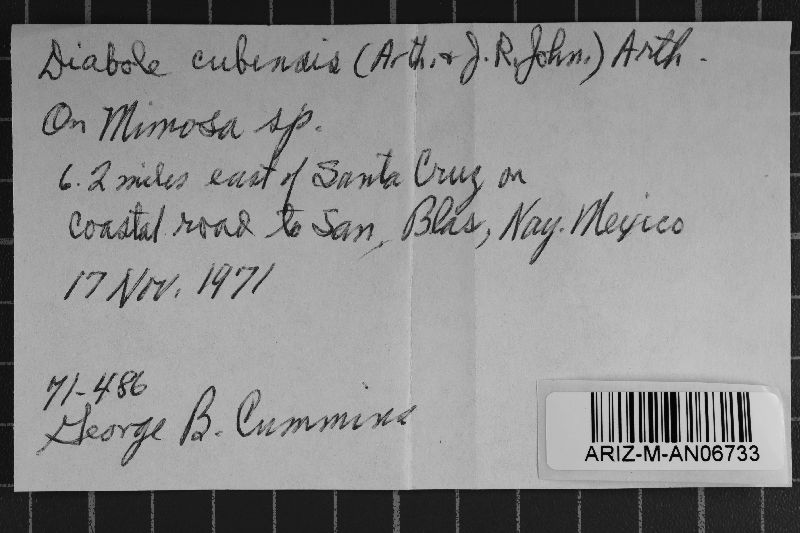 Diabole cubensis (Arth. & J. R. John.) Arth.
On Mimosa sp.
6.2 miles east of Santa Cruz on
coastal road to San Blas, Nay. Mexico
17 Nov. 1971
71-486
George B. Cummins
ARIZ-M-AN06733